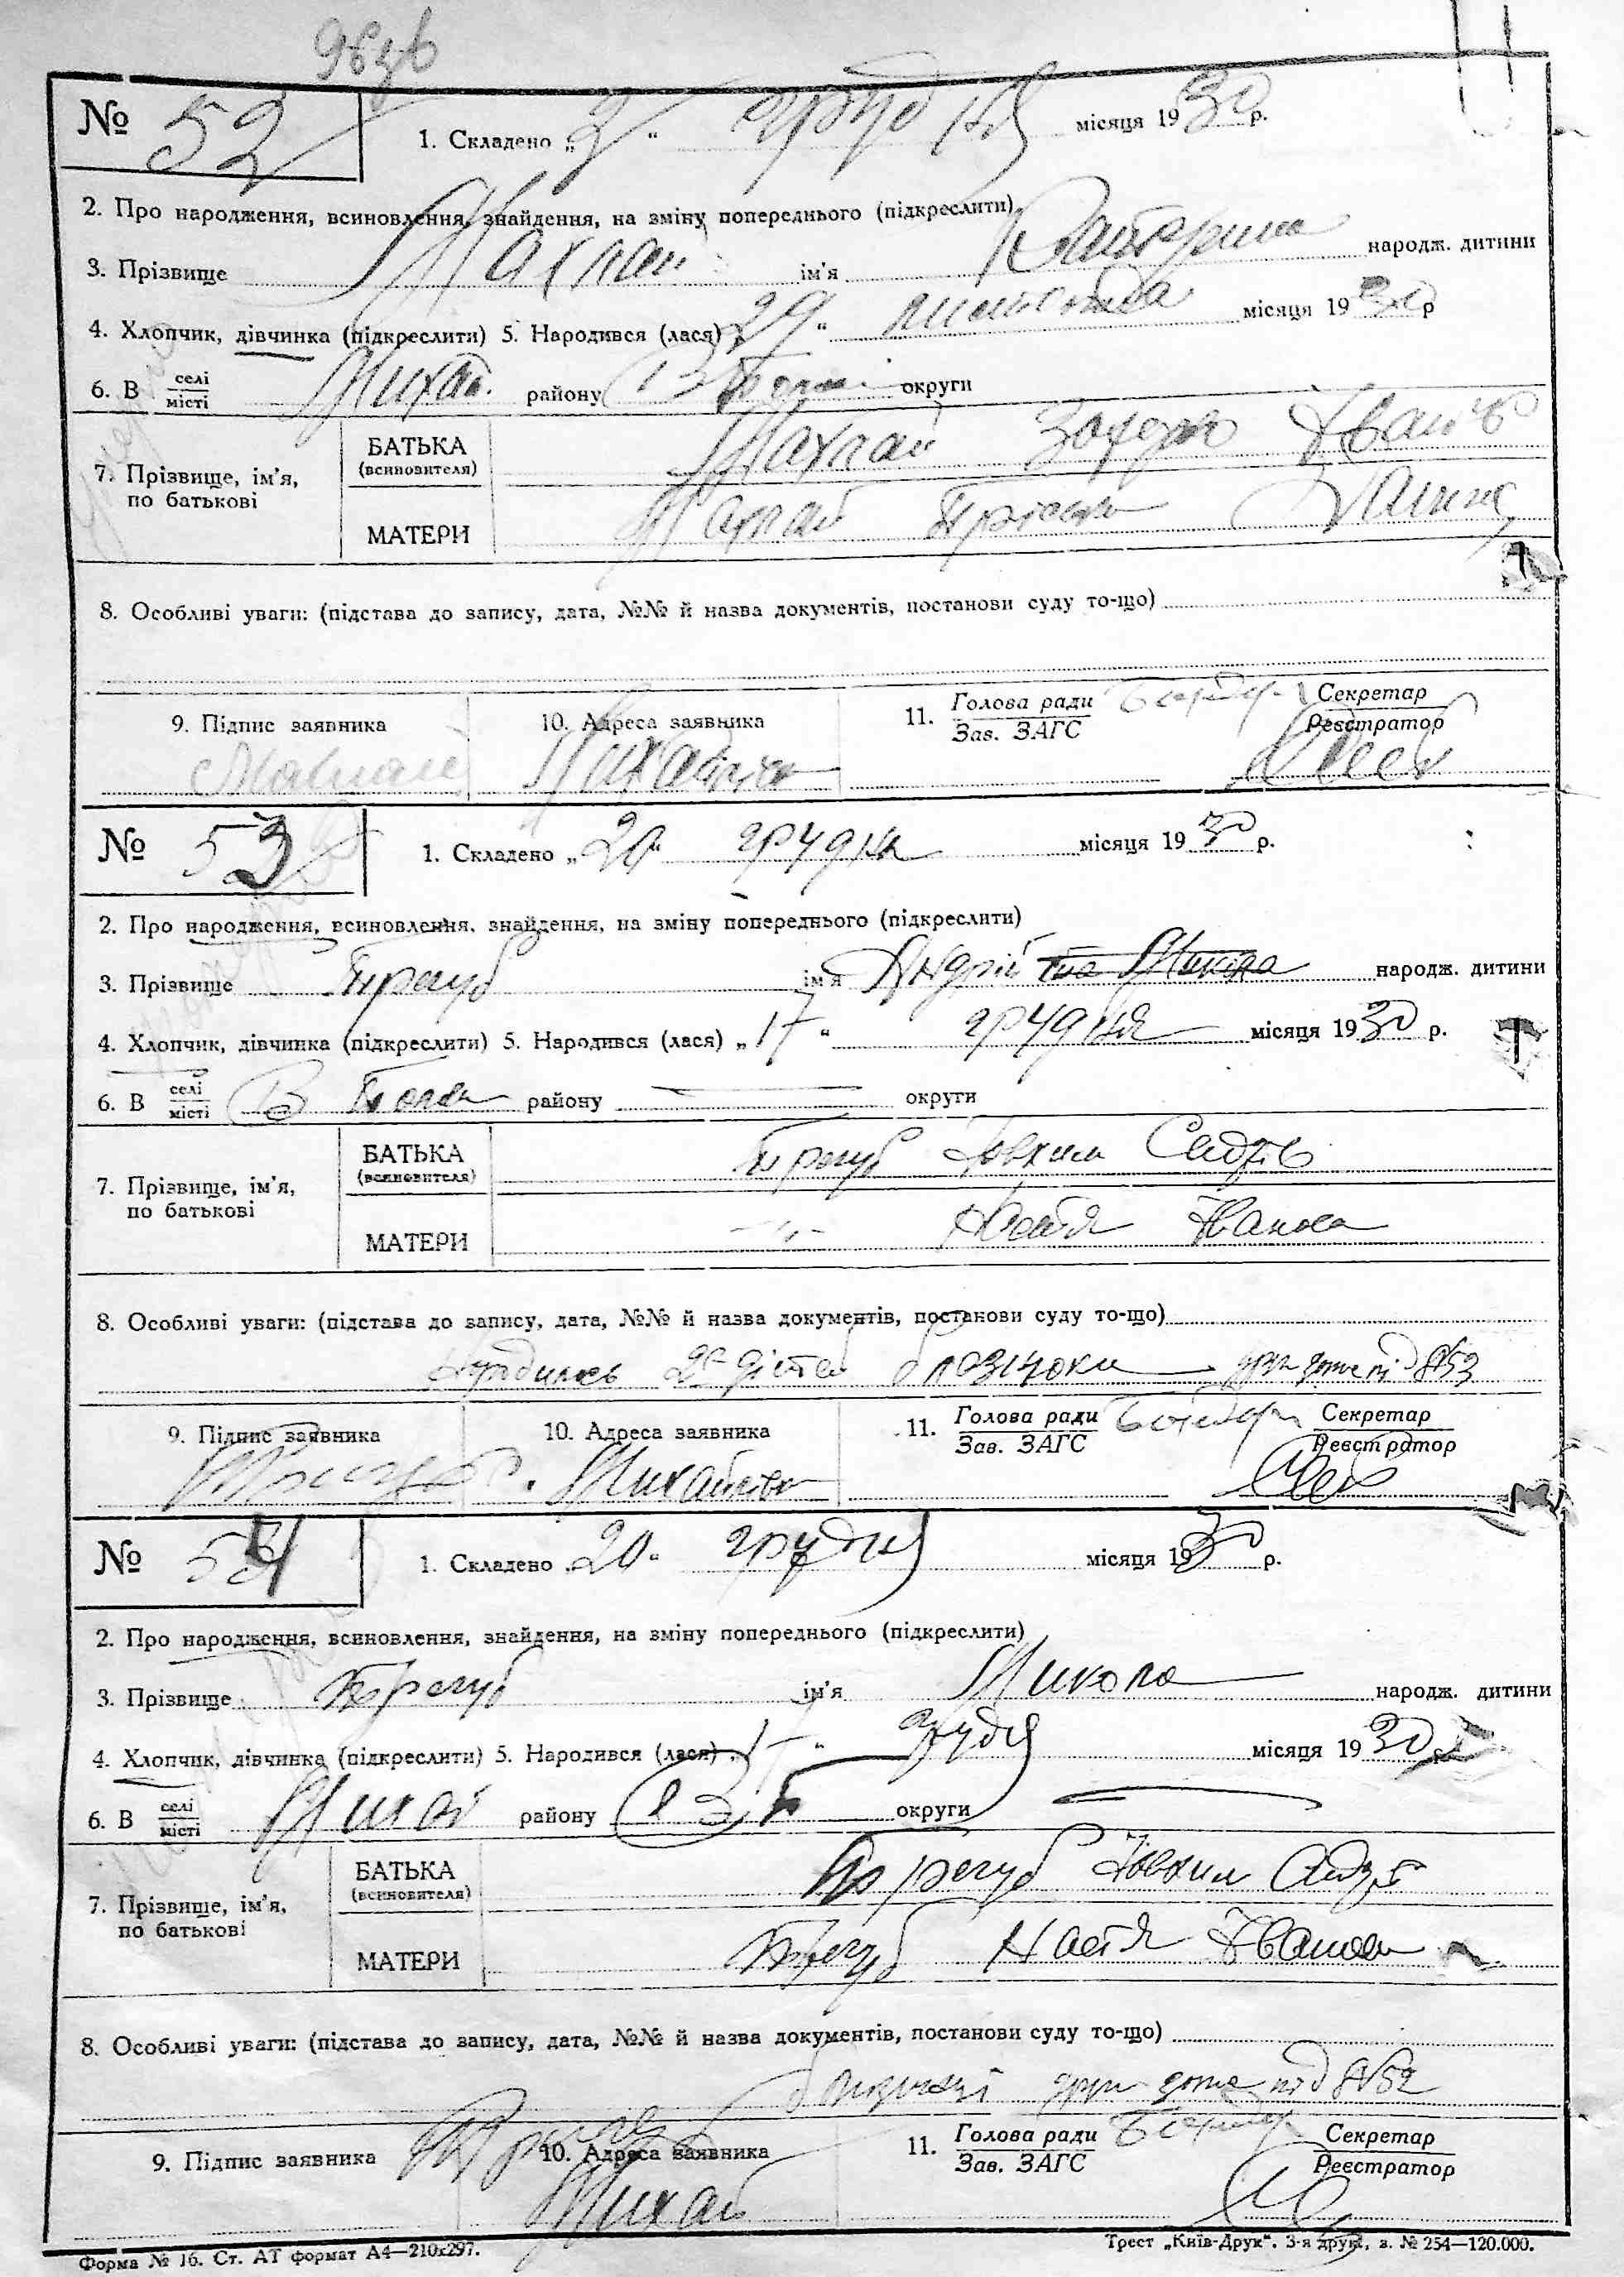 № 52
1. Складено „2“ грудня місяця 1930 р.
2. Про народження, всиновлення, знайдення, на зміну попереднього (підкреслити)
3. Прізвище Махлай ім'я народж. дитини
4. Хлопчик, дівчинка (підкреслити) 5. Народився (лася) „29“ листопада місяця 1930 р
6. В селі/місті Михай. району округи
7. Прізвище, ім'я, по батькові
БАТЬКА (всиновителя) Махлай
МАТЕРИ Махлай
8. Особливі уваги: (підстава до запису, дата, №№ й назва документів, постанови суду то-що)
9. Підпис заявника Махлай
10. Адреса заявника Михайлівка
11. Голова ради / Зав. ЗАГС
Секретар / Реєстратор
№ 53
1. Складено „20“ грудня місяця 1930 р.
2. Про народження, всиновлення, знайдення, на зміну попереднього (підкреслити)
3. Прізвище Трегуб ім'я Андрій та Микола народж. дитини
4. Хлопчик, дівчинка (підкреслити) 5. Народився (лася) „17“ грудня місяця 1930 р.
6. В селі/місті району округи
7. Прізвище, ім'я, по батькові
БАТЬКА (всиновителя) Трегуб Йовхим
МАТЕРИ -"- Настя Іванова
8. Особливі уваги: (підстава до запису, дата, №№ й назва документів, постанови суду то-що)
близнюки під №53
9. Підпис заявника
10. Адреса заявника Михайлівка
11. Голова ради / Зав. ЗАГС
Секретар / Реєстратор
№ 54
1. Складено „20“ грудня місяця 1930 р.
2. Про народження, всиновлення, знайдення, на зміну попереднього (підкреслити)
3. Прізвище Трегуб ім'я Микола народж. дитини
4. Хлопчик, дівчинка (підкреслити) 5. Народився (лася) „17“ грудня місяця 1930 р.
6. В селі/місті Михай району округи
7. Прізвище, ім'я, по батькові
БАТЬКА (всиновителя) Трегуб Йовхим
МАТЕРИ Трегуб Настя Іванова
8. Особливі уваги: (підстава до запису, дата, №№ й назва документів, постанови суду то-що)
під №52
9. Підпис заявника
10. Адреса заявника Михай
11. Голова ради / Зав. ЗАГС
Секретар / Реєстратор
Форма № 16. Ст. АТ формат А4—210x297.
Трест „Київ-Друк“. 3-я друк, з. № 254—120.000.